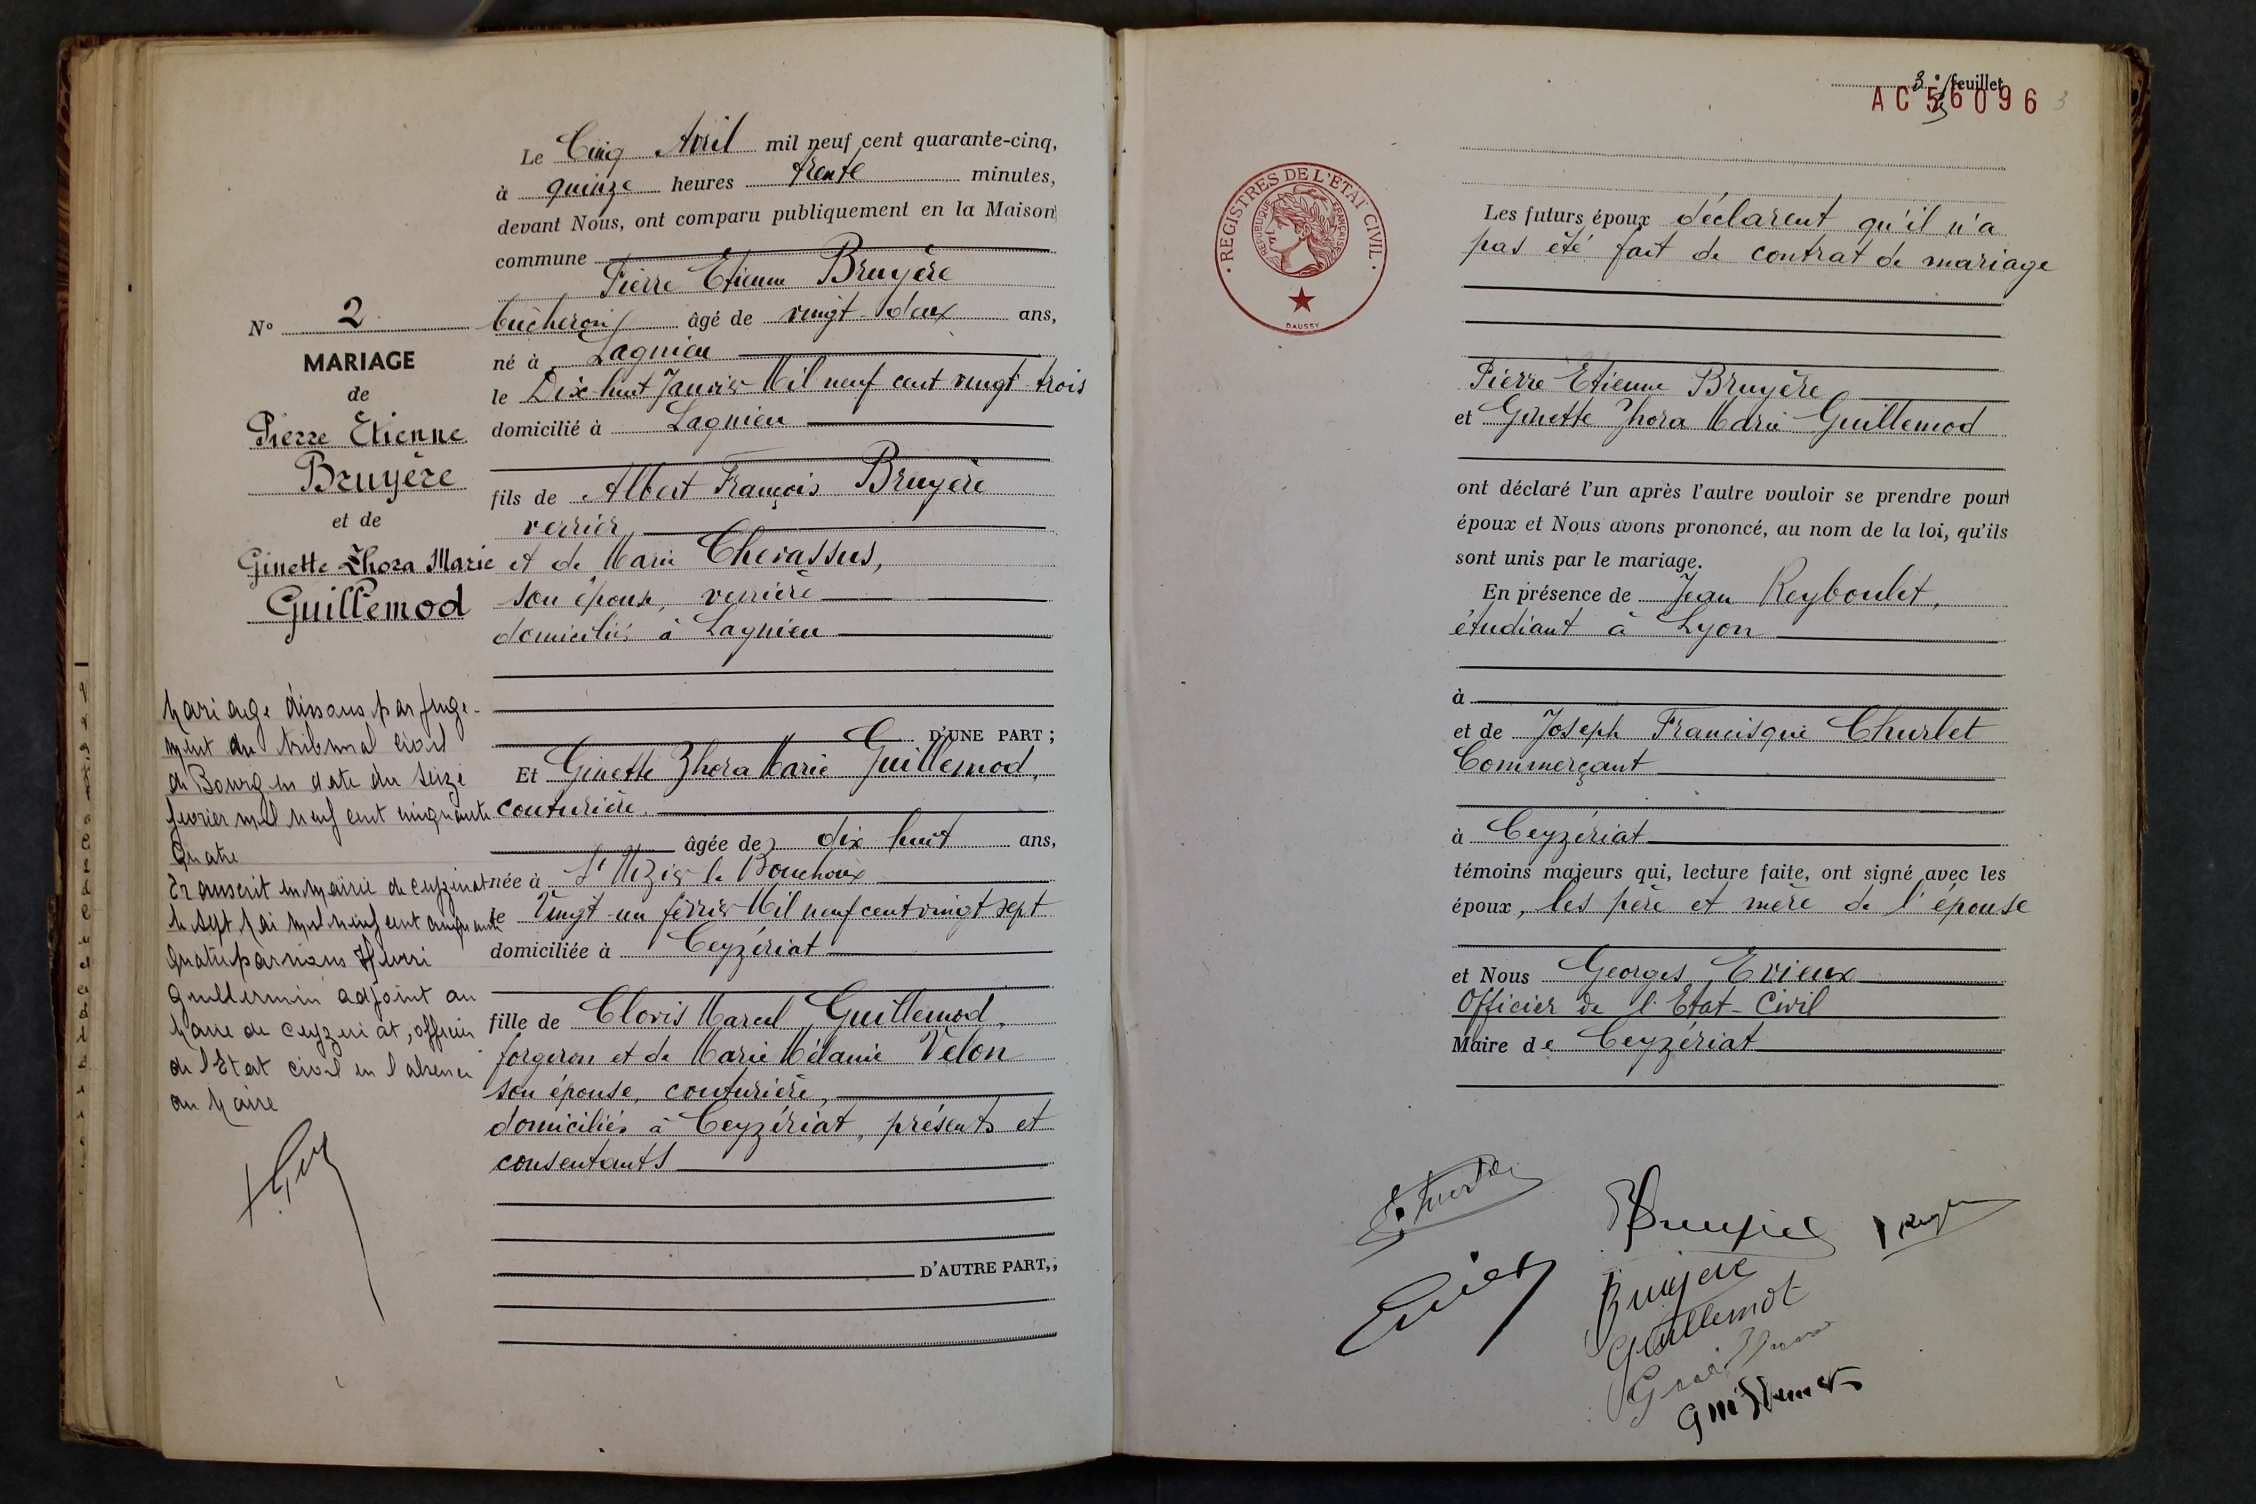 Le Cinq Avril mil neuf cent quarante-cinq,
à quinze heures trente minutes,
devant Nous, ont comparu publiquement en la Maison
commune
Pierre Etienne Bruyère
bûcheron âgé de vingt deux ans,
né à Lagnieu
le Dix-huit Janvier Mil neuf cent vingt-trois
domicilié à Lagnieu
fils de Albert François Bruyère
verrier,
et de Marie Chevassus,
son épouse, verrière
domiciliés à Lagnieu
D'UNE PART ;
Et Ginette Zhora Marie Guillemod,
couturière
âgée de dix huit ans,
née à St Nizier le Bouchoux
le Vingt-un février Mil neuf cent vingt sept
domiciliée à Ceyzériat
fille de Clovis Marcel Guillemod,
forgeron et de Marie Mélanie Velon
son épouse, couturière,
domiciliés à Ceyzériat, présents et
consentants
D'AUTRE PART,;
N° 2
MARIAGE
de
Pierre Etienne
Bruyère
et de
Ginette Zhora Marie
Guillemod
Mariage dissous par juge-
ment du tribunal civil
de Bourg en date du seize
février mil neuf cent cinquante
quatre
Transcrit en mairie de Ceyzériat
le sept Mai mil neuf cent cinquante
quatre par nous Henri
Guillermin adjoint au
Maire de Ceyzériat, officier
de l'Etat civil en l'absence
du Maire
3e feuillet
AC 56096
3
REGISTRES DE L'ETAT CIVIL
REPUBLIQUE FRANÇAISE
DAUSSY
Les futurs époux déclarent qu'il n'a
pas été fait de contrat de mariage
Pierre Etienne Bruyère
et Ginette Zhora Marie Guillemod
ont déclaré l'un après l'autre vouloir se prendre pour
époux et Nous avons prononcé, au nom de la loi, qu'ils
sont unis par le mariage.
En présence de Jean Reyboulet,
étudiant à Lyon
à
et de Joseph Francisque Churlet
Commerçant
à Ceyzériat
témoins majeurs qui, lecture faite, ont signé avec les
époux, les père et mère de l'épouse
et Nous Georges Evieux
Officier de l'Etat-Civil
Maire de Ceyzériat
Bruyère
Bruyere
Guillemot
Guillemot